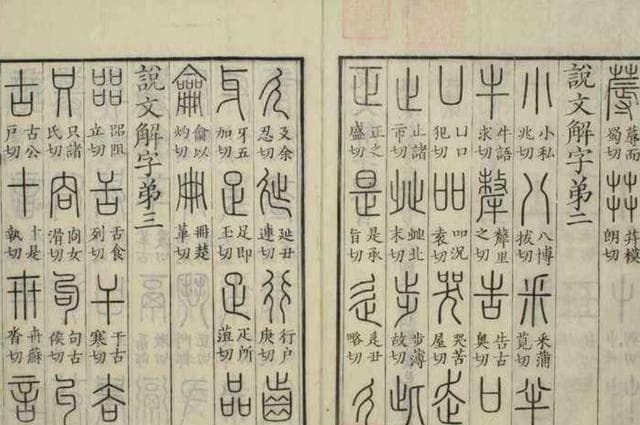 蓐蓐而蜀切茻茻模朗切
說文解字弟二
小小私兆切八八博拔切釆釆蒲莧切半
牛牛語求切犛犛里之切告告古奧切口
凵凵口犯切吅吅況袁切哭哭苦屋切走
止止諸市切癶癶北末切步步薄故切此
正正之盛切是是承旨切辵辵丑略切彳
廴廴余忍切㢟㢟丑連切行行戶庚切齒
牙牙五加切足足即玉切疋疋所菹切品
龠龠以灼切冊冊楚革切
說文解字弟三
㗊㗊阻立切舌舌食列切干干古寒切𧮫
只只諸氏切㕯㕯女滑切句句古侯切丩
古古公戶切十十是執切卅卅蘇沓切言